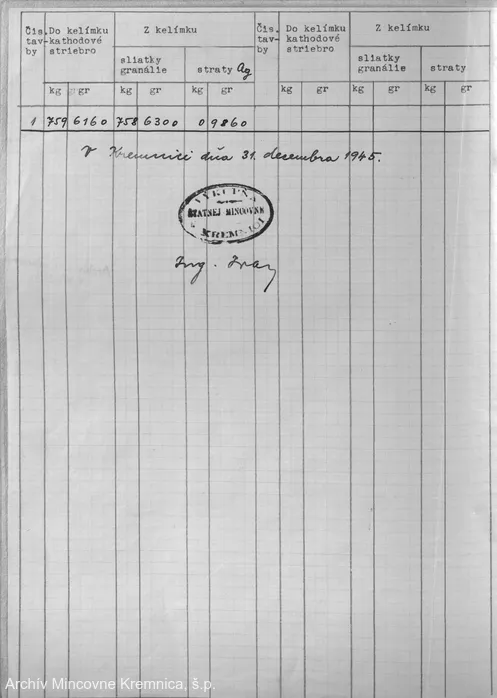 Čís. Do kelímku Z kelímku Čis. Do kelímku Z kelímku
tav- kathodové tav- kathodové
by striebro by striebro
sliatky granálie straty Ag sliatky granálie straty
kg gr kg gr kg gr kg gr kg gr kg gr
1 759 6160 758 6300 0 9860
V Kremnici dňa 31. decembra 1945.
VÝKUPŇA
ŠTÁTNEJ MINCOVNE
V KREMNICI
Ing.
Archív Mincovne Kremnica, š.p.